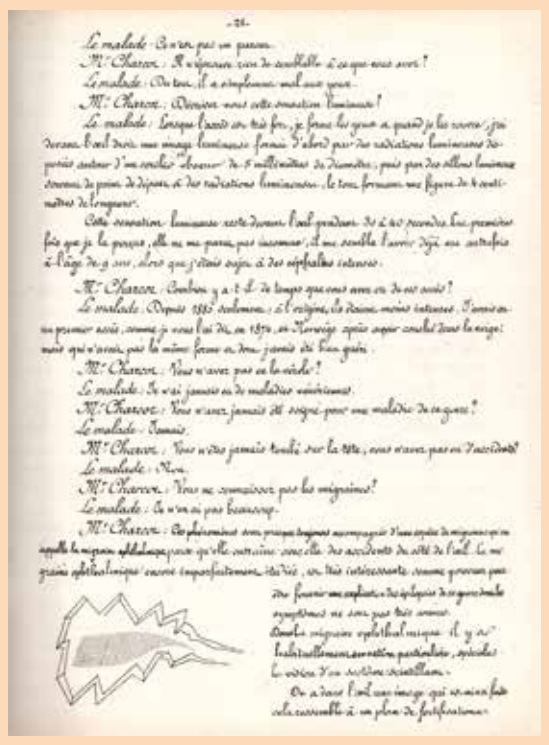 -26-
Le malade : Ce n'est pas un parent.
Mr Charcot : Il n'éprouve rien de semblable à ce que vous avez ?
Le malade : Du tout, il a simplement mal aux yeux.
Mr Charcot : Décrivez-nous cette sensation lumineuse ?
Le malade : Lorsque l'accès est très fort, je ferme les yeux et quand je les rouvre, j'ai
devant l'œil droit une image lumineuse formée d'abord par des radiations lumineuses dis-
posées autour d'un cercle obscur de 5 millimètres de diamètre, puis par des sillons lumineux
servant de point de départ à des radiations lumineuses, le tout formant une figure de 4 centi-
mètres de longueur.
Cette sensation lumineuse reste devant l'œil pendant 30 à 40 secondes. Les premières
fois que je la perçus, elle ne me parut pas inconnue, il me semble l'avoir déjà eue autrefois
à l'âge de 9 ans, alors que j'étais sujet à des céphalées intenses.
Mr Charcot : Combien y a-t-il de temps que vous avez eu de ces accès ?
Le malade : Depuis 1885 seulement ; à l'origine, ils étaient moins intenses. J'avais eu
un premier accès, comme je vous l'ai dit, en 1874, en Norwège après avoir couché dans la neige ;
mais qui n'avait pas la même forme et dont j'avais été bien guéri.
Mr Charcot : Vous n'avez pas eu la vérole ?
Le malade : Je n'ai jamais eu de maladies vénériennes.
Mr Charcot : Vous n'avez jamais été soigné pour une maladie de ce genre ?
Le malade : Jamais.
Mr Charcot : Vous n'êtes jamais tombé sur la tête, vous n'avez pas eu d'accidents ?
Le malade : Non.
Mr Charcot : Vous ne connaissez pas les migraines ?
Le malade : Je n'en ai pas beaucoup.
Mr Charcot : Ces phénomènes sont presque toujours accompagnés d'une espèce de migraine qu'on
appelle la migraine ophthalmique parce qu'elle entraîne avec elle des accidents du côté de l'œil. La mi-
graine ophthalmique encore imparfaitement étudiée, est très intéressante comme pouvant peut-
être fournir une explication des épilepsies de ce genre dont les
symptômes ne sont pas très connus.
Dans la migraine ophthalmique il y a
habituellement sensation particulière, spéciale
la vision d'un scotôme scintillant.
On a dans l'œil une image qui est ainsi faite
cela ressemble à un plan de fortifications.